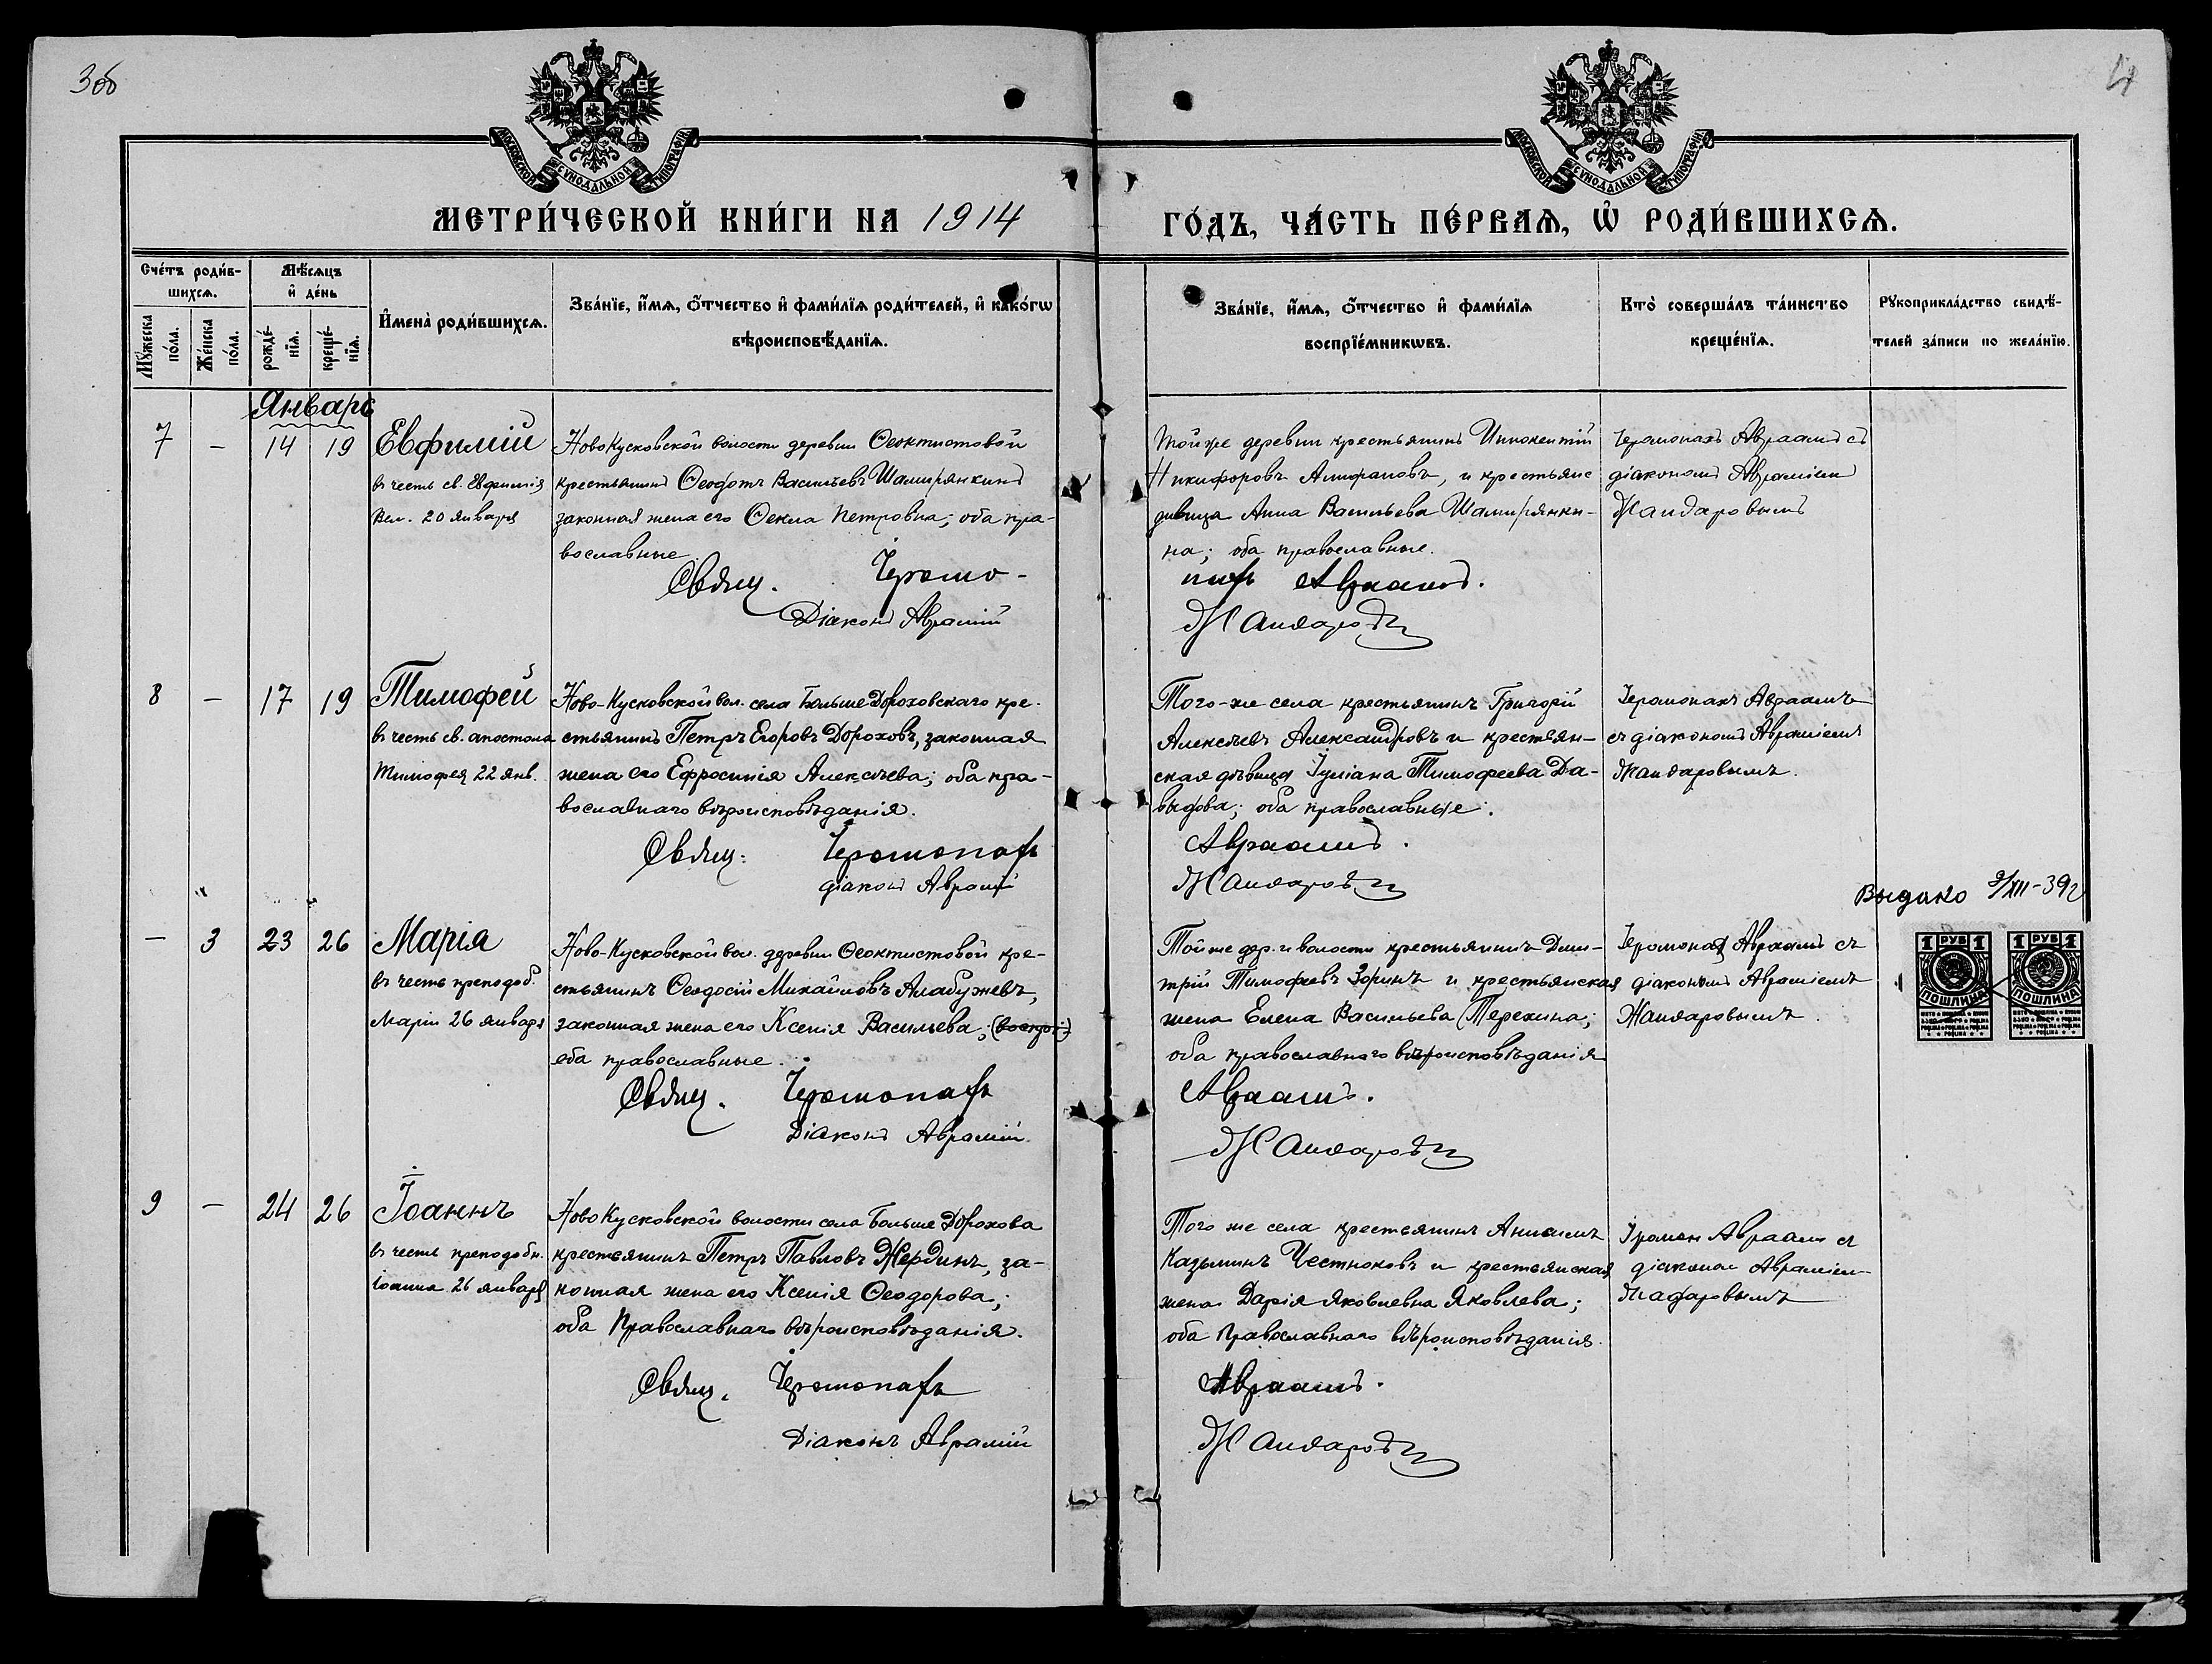 3об
4
МОСКОВСКОЙ СУНОДАЛЬНОЙ ТИПОГРАФІИ
МОСКОВСКОЙ СУНОДАЛЬНОЙ ТИПОГРАФІИ
МЕТРИ́ЧЕСКОЙ КНИ́ГИ НА 1914
ГО́ДЪ, ЧА́СТЬ ПЕ́РВАѦ, Ѡ҆ РОДИ́ВШИХСѦ.
Сче́тъ роди́в-
шихсѧ.
Мѣ́сѧцъ
и҆ де́нь
Мꙋ́жеска
по́ла.
Же́нска
по́ла.
рожде́-
нїѧ.
креще́-
нїѧ.
И҆мена̀ роди́вшихсѧ.
Зва́нїе, и҆́мѧ, ѻ҆́тчество и҆ фами́лїѧ роди́телей, и҆ како́гѡ
вѣроисповѣ́данїѧ.
Зва́нїе, и҆́мѧ, ѻ҆́тчество и҆ фами́лїѧ
воспрїе́мникѡвъ.
Кто̀ соверша́лъ та́инство
креще́нїѧ.
Рꙋкоприкла́дство свидѣ́-
телей за́писи по жела́нїю.
Января
7 – 14 19
Евфимій
въ честь св. Евфимія
Вел. 20 января
НовоКусковской волости деревни Ѳеоктистовой
крестьянинъ Ѳеодотъ Васильевъ
законная жена его Ѳекла Петровна; оба пра-
вославные
Свящ. Іеромо-
Діаконъ Аврамій
Той же деревни крестьянинъ Иннокентій
Никифоровъ и крестьянс
дѣвица Анна Васильева
на; оба православные.
нахъ Авраамъ.
Жандаровъ
Іеромонахъ Авраамъ съ
діакономъ Авраміем
Жандаровымъ
8 – 17 19
Тимофей
въ честь св. апостола
Тимофея 22 янв.
Ново-Кусковской вол. села Больше Дороховскаго кре-
стьянинъ Петръ Егоровъ Дороховъ, законная
жена его Ефросинія Алексѣева; оба пра-
вославнаго вѣроисповѣданія.
Свящ: Іеромонахъ
діаконъ Аврамій
Того-же села крестьянинъ Григорій
Алексѣевъ Александровъ и крестьян-
ская дѣвица Іуліана Тимофеева Да-
выдова; оба православные.
Авраамъ.
Жандаровъ
Іеромонахъ Авраамъ
съ діакономъ Авраміемъ
Жандаровымъ.
Выдано 9/XII-39г
– 3 23 26
Марія
въ честь преподоб.
Маріи 26 января
Ново-Кусковской вол. деревни Ѳеоктистовой кре-
стьянинъ Ѳеодосій Михайловъ Алабужевъ,
законная жена его Ксенія Васильева;
оба православные.
Свящ. Іеромонахъ
Діаконъ Аврамій
Той же дер. и волости крестьянинъ Дми-
трій Тимофеевъ Зоринъ и крестьянская
жена Елена Васильева Терехина;
оба православнаго вѣроисповѣданія
Авраамъ.
Жандаровъ
Іеромонахъ Авраамъ съ
діакономъ Авраміемъ
Жандаровымъ
1 РУБ 1
ПОШЛИНА
1 РУБ 1
ПОШЛИНА
9 – 24 26
Іоаннъ
въ честь преподобн.
Іоанна 26 января
НовоКусковской волости села Больше Дорохова
крестьянинъ Петръ Павловъ Жердинъ, за-
конная жена его Ксенія Ѳеодорова;
оба Православнаго вѣроисповѣданія.
Свящ. Іеромонахъ
Діаконъ Аврамій
Того же села крестьянинъ
Казьминъ Честноковъ и крестьянская
жена Дарія Яковлевна Яковлева;
оба православнаго вѣроисповѣданія.
Авраамъ.
Жандаровъ
Іромон Авраам съ
діаконом Авраміем
Жадаровымъ